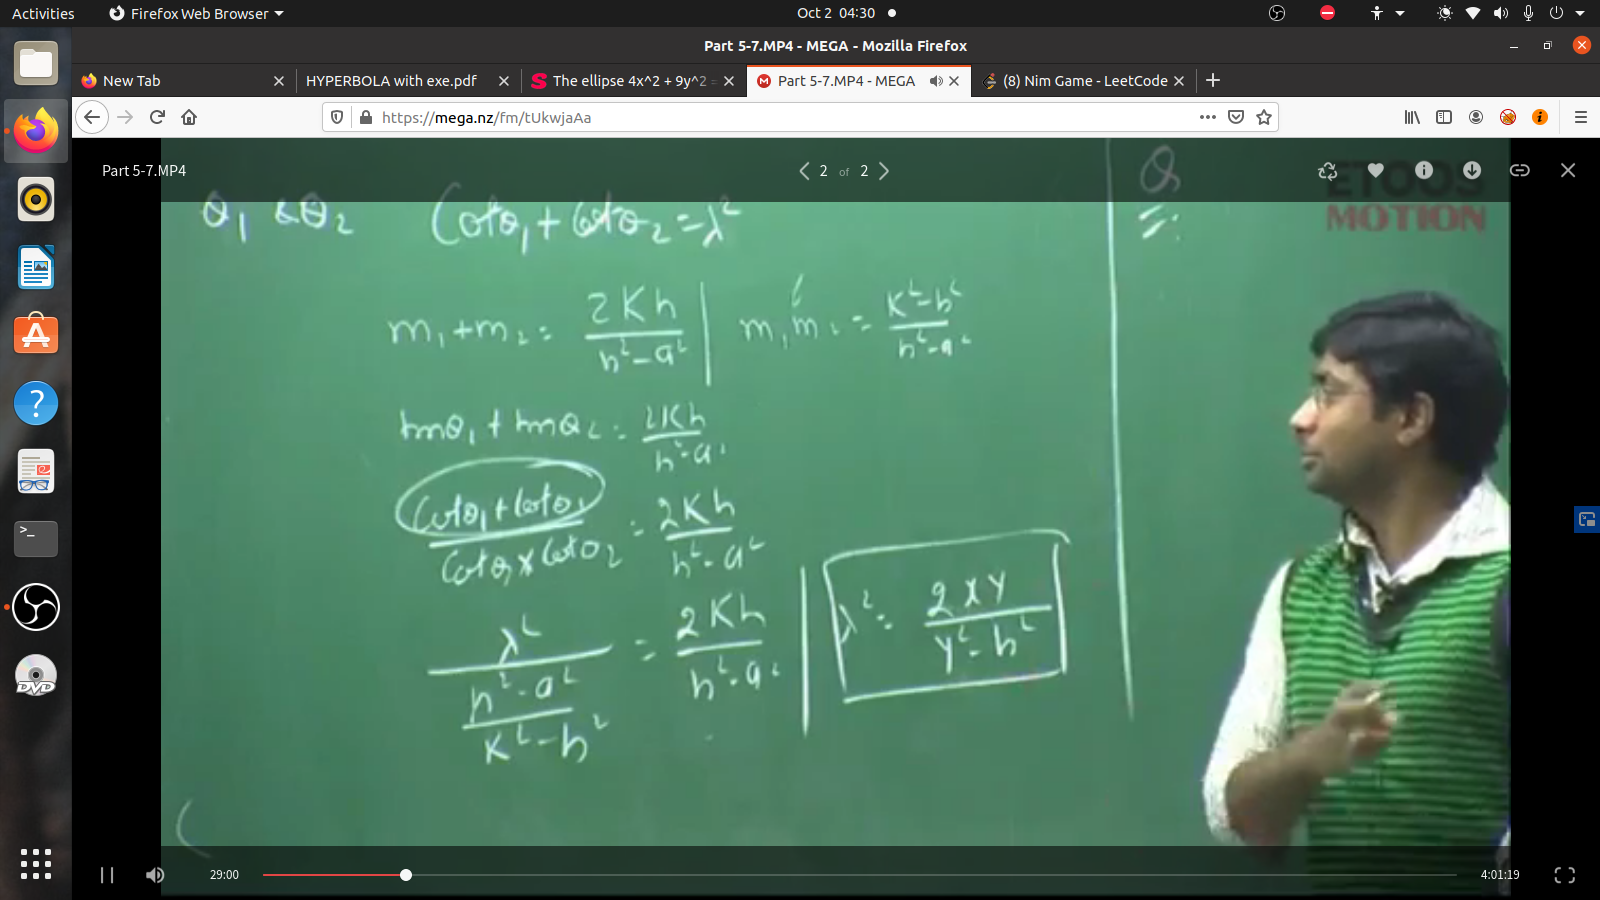 Activities Firefox Web Browser Oct 2 04:30
Part 5-7.MP4 - MEGA - Mozilla Firefox
New Tab HYPERBOLA with exe.pdf The ellipse 4x^2 + 9y^2 Part 5-7.MP4 - MEGA (8) Nim Game - LeetCode
https://mega.nz/fm/tUkwjaAa
Part 5-7.MP4 2 of 2
ETOOS
MOTION
Q:
θ₁ & θ₂ Cotθ₁ + Cotθ₂ = λ²
m₁ + m₂ = 2Kh / h² - a² | m₁m₂ = K² - b² / h² - a²
tanθ₁ + tanθ₂ = 2Kh / h² - a²
Cotθ₁ + Cotθ₂ / Cotθ₁ x Cotθ₂ = 2Kh / h² - a²
λ² / (h² - a² / K² - b²) = 2Kh / h² - a² | λ² = 2xy / y² - b²
29:00 4:01:19
>_
?
DVD